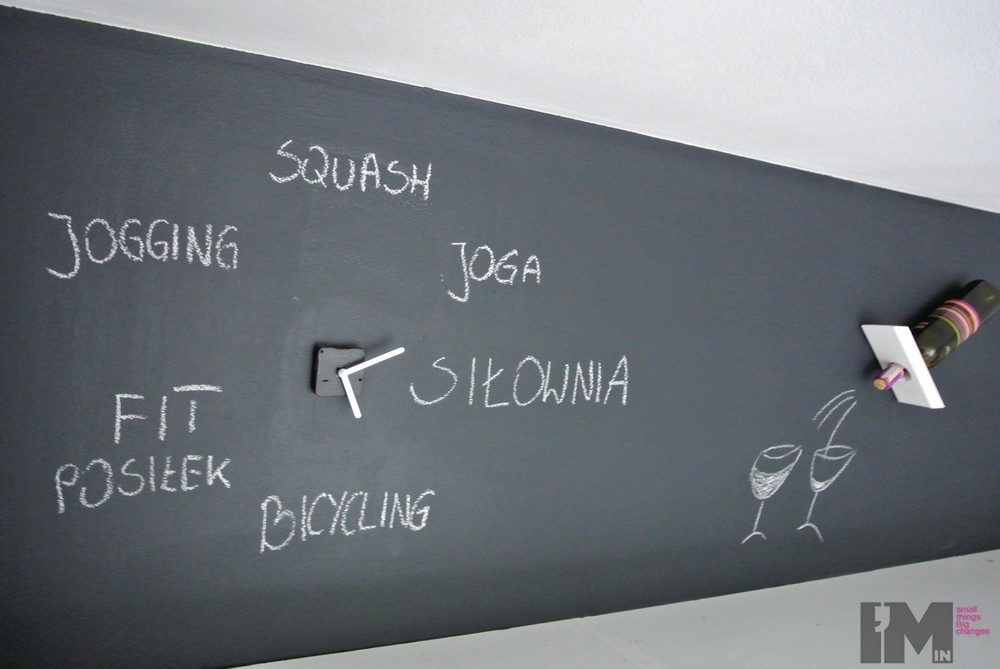 SQUASH
JOGGING
JOGA
SIŁOWNIA
FIT
POSIŁEK
BICYCLING
I'M IN
small
things
Big
changes